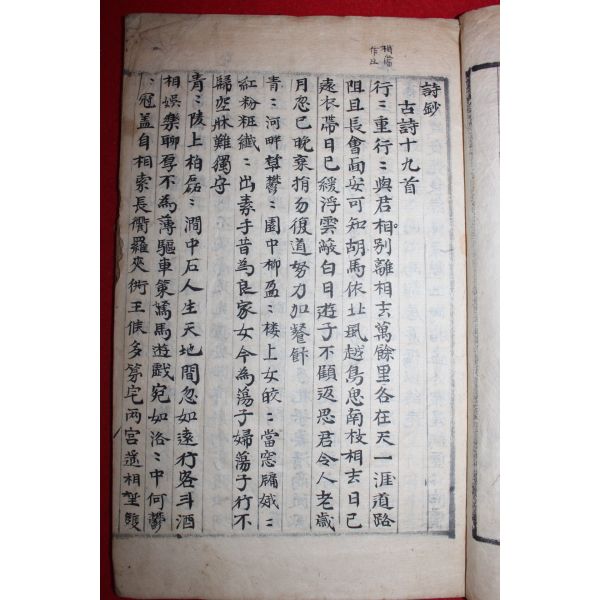 詩鈔
古詩十九首
行〻重行〻與君相別離相去萬餘里各在天一涯道路
阻且長會面安可知胡馬依北風越鳥思南枝相去日已
遠衣帶日已緩浮雲蔽白日遊子不顧返思君令人老歲
月忽已晩棄捐勿復道努力加餐飯
青〻河畔草鬱〻園中柳盈〻楼上女皎〻當窓牖娥〻
紅粉粧纖〻出素手昔為良家女今為蕩子婦蕩子行不
歸空牀難獨守
青〻陵上柏磊〻澗中石人生天地間忽如遠行客斗酒
相娛樂聊厚不為薄驅車策駑馬遊戲宛如洛〻中何鬱
〻冠盖自相索長衢羅夾術王侯多第宅兩宮遙相望雙